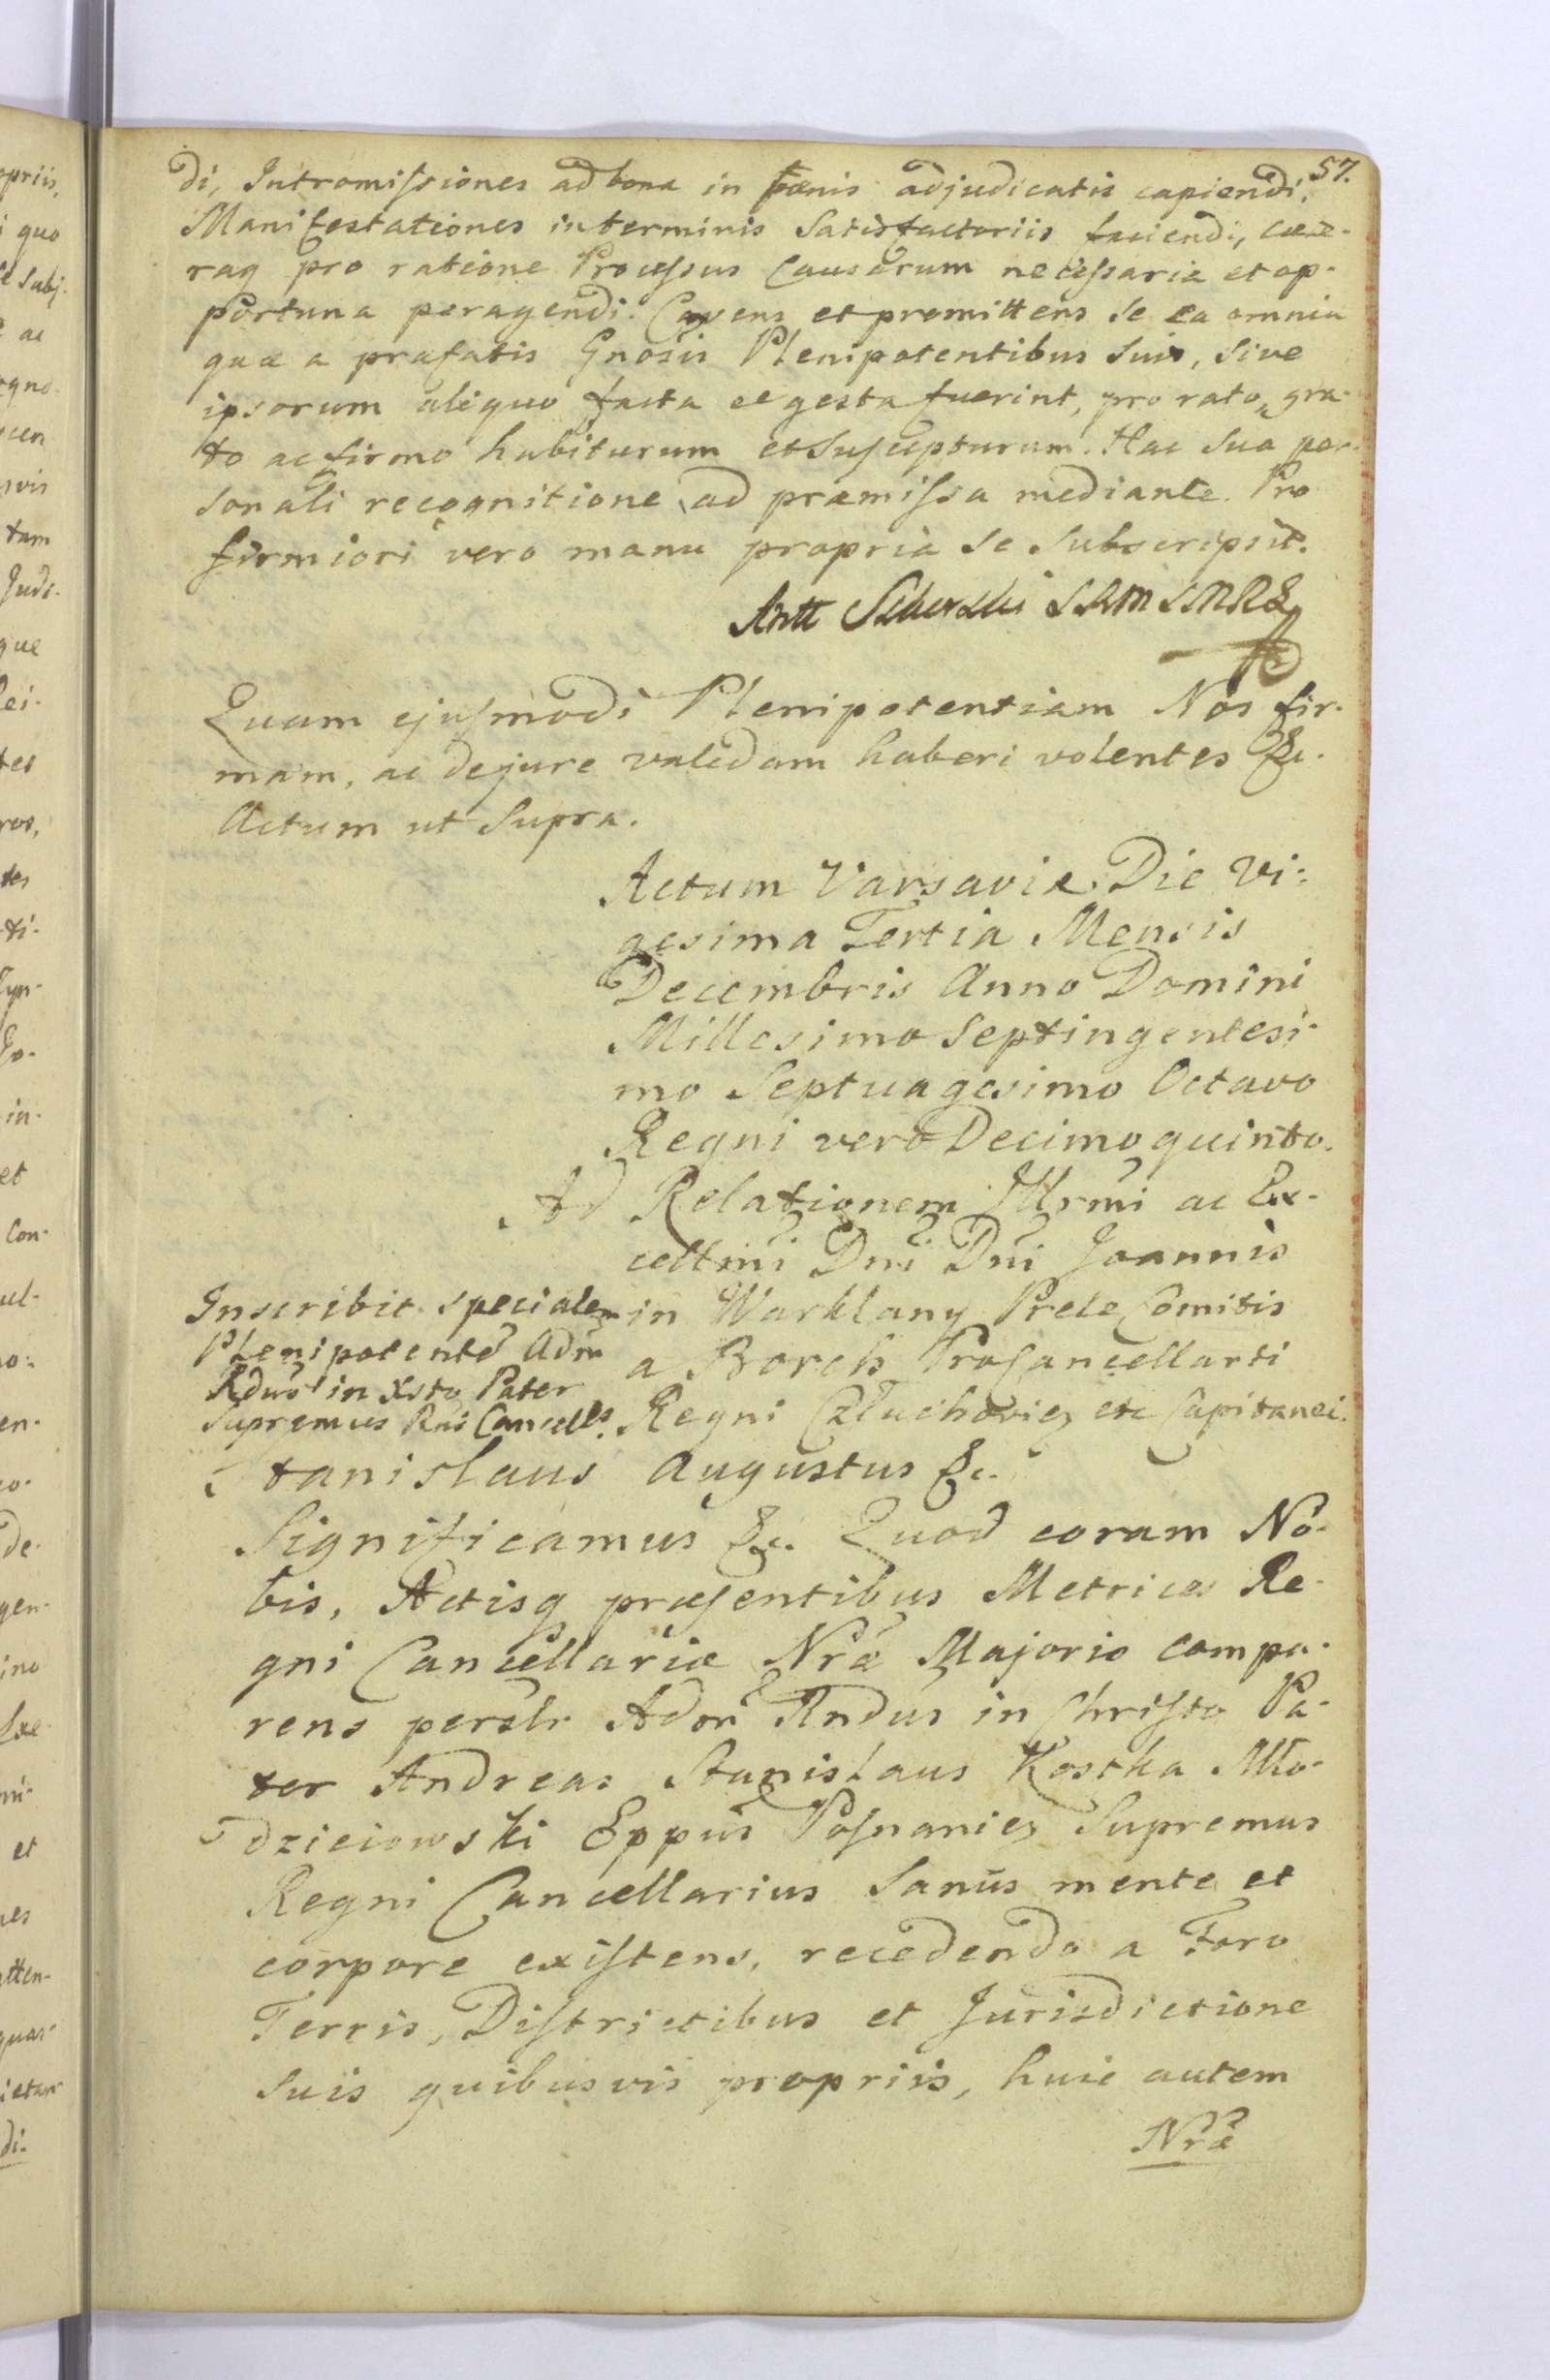 57.
di, Intromissiones ad bona in pænis adjudicatis capiendi,
Manifestationes in terminis Satisfactoriis faciendi, cæte-
raq pro ratione Processus Causarum necessaria et op-
portuna peragendi. Cavens et promittens se ea omnia
quæ a præfatis Gnosis Plenipotentibus suis, sive
ipsorum aliquo facta et gesta fuerint, pro rato, gra-
to ac firmo habiturum et suscepturum. Hac sua per-
sonali recognitione ad præmissa mediante. Pro
firmiori vero manu propria se subscripsit.
Antt
Quam ejusmodi Plenipotentiam Nos fir-
mam, ac de jure validam haberi volentes &c.
Actum ut supra.
Actum Varsaviæ Die Vi-
gesima Tertia Mensis
Decembris Anno Domini
Millesimo Septingentesi-
mo Septuagesimo Octavo
Regni vero Decimo quinto.
Ad Relationem Illrmi ac Ex-
cellmi Dni Dni Joannis
in Warklany Prele Comitis
a Borch Procancellarii
Regni Człuchovien etc Capitanei.
Inscribit specialem
Plenipotentē Adm
Rdus in Xsto Pater
Supremus Rni Cancells.
Stanislaus Augustus &c.
Significamus &c. Quod coram No-
bis, Actisq præsentibus Metrices Re-
gni Cancellariæ Nræ Majoris compa-
rens persolr Adm Rndus in Christo Pa-
ter Andreas Stanislaus Kostka Mło-
dzieiowski Eppus Posnanien Supremus
Regni Cancellarius Sanus mente et
corpore existens, recedendo a Foro
Terris, Districtibus et Jurisdictione
suis quibusvis propriis, huic autem
Nræ